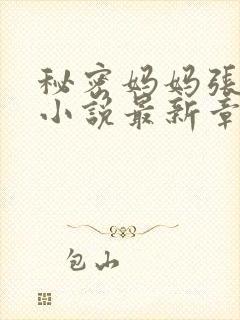 秘密妈妈張
小說最新章
包山